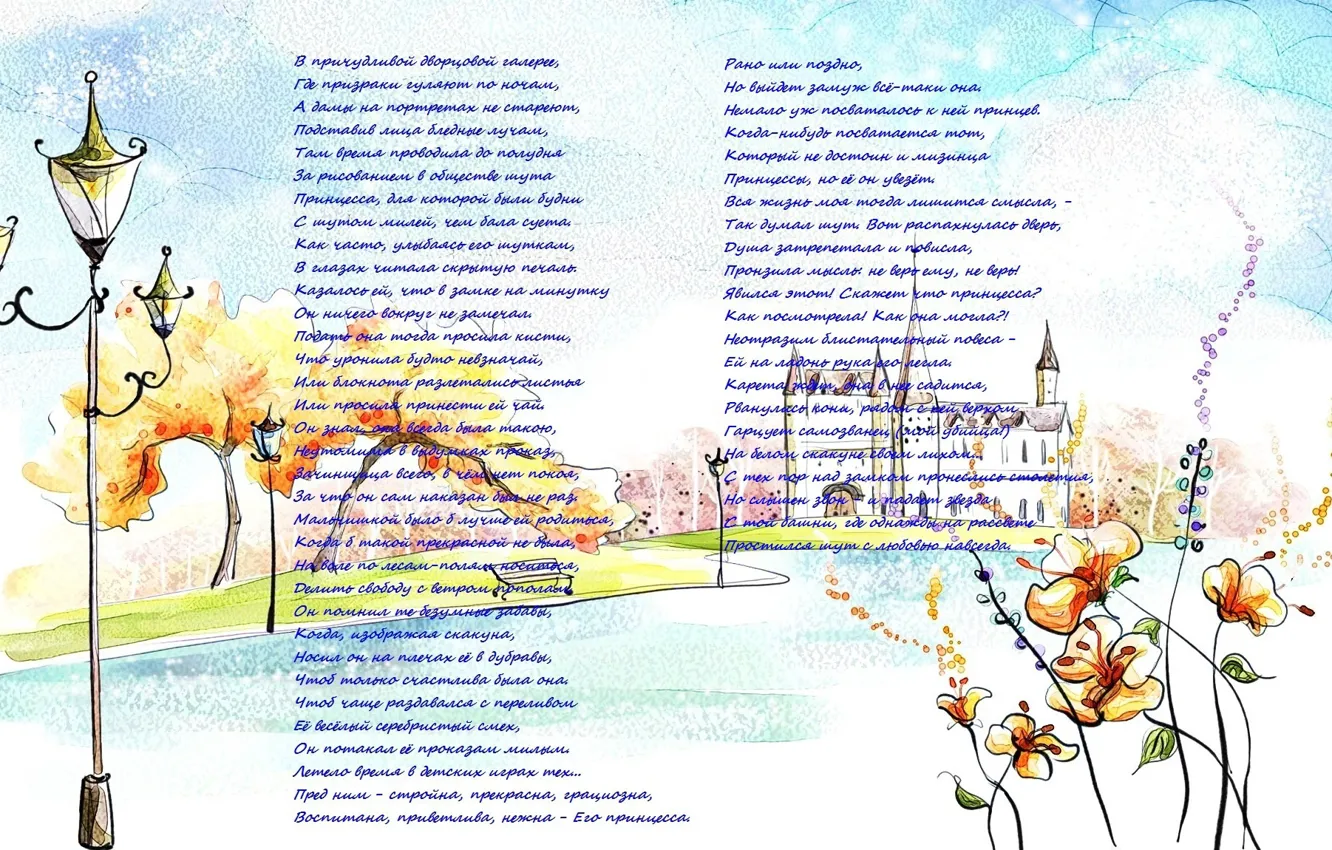 В причудливой дворцовой галерее,
Где призраки гуляют по ночам,
А дамы на портретах не стареют,
Подставив лица бледные лучам,
Там время проводила до полудня
За рисованием в обществе шута
Принцесса, для которой были будни
С шутом милей, чем бала суета.
Как часто, улыбаясь его шуткам,
В глазах читала скрытую печаль.
Казалось ей, что в замке на минутку
Он ничего вокруг не замечал.
Подать она тогда просила кисти,
Что уронила будто невзначай,
Или блокнота разлетались листья
Или просила принести ей чай.
Он знал, она всегда была такою,
Неутомима в выдумках проказ,
Зачинщица всего, в чём нет покоя,
За что он сам наказан был не раз.
Мальчишкой было б лучше ей родиться,
Когда б такой прекрасной не была,
На воле по лесам-полям носиться,
Делить свободу с ветром пополам.
Он помнил те безумные забавы,
Когда, изображая скакуна,
Носил он на плечах её в дубравы,
Чтоб только счастлива была она.
Чтоб чаще раздавался с переливом
Её весёлый серебристый смех,
Он потакал её проказам милым.
Летело время в детских играх тех...
Пред ним - стройна, прекрасна, грациозна,
Воспитана, приветлива, нежна - Его принцесса.
Рано или поздно,
Но выйдет замуж всё-таки она.
Немало уж посваталось к ней принцев.
Когда-нибудь посватается тот,
Который не достоин и мизинца
Принцессы, но её он увезёт.
Вся жизнь моя тогда лишится смысла, -
Так думал шут. Вот распахнулась дверь,
Душа затрепетала и повисла,
Пронзила мысль: не верь ему, не верь!
Явился этот! Скажет что принцесса?
Как посмотрела! Как она могла?!
Неотразим блистательный повеса -
Ей на ладонь рука его легла.
Карета ждёт, она в неё садится,
Рванулись кони, рядом с ней верхом
Гарцует самозванец (мой убийца!)
На белом скакуне своём лихом...
С тех пор над замком пронеслись столетия,
Но слышен звон - и падает звезда
С той башни, где однажды на рассвете
Простился шут с любовью навсегда.